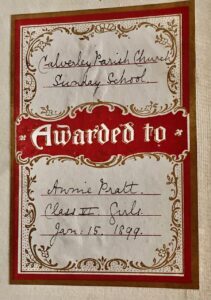 Calverley Parish Church
Sunday School.
Awarded to
Annie Pratt.
Class VI. Girls.
Jan. 15. 1899.